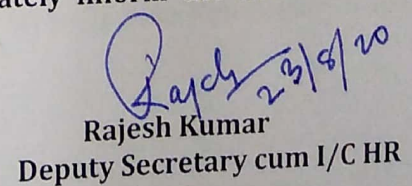 ately inform
Rajesh 23/8/20
Rajesh Kumar
Deputy Secretary cum I/C HR